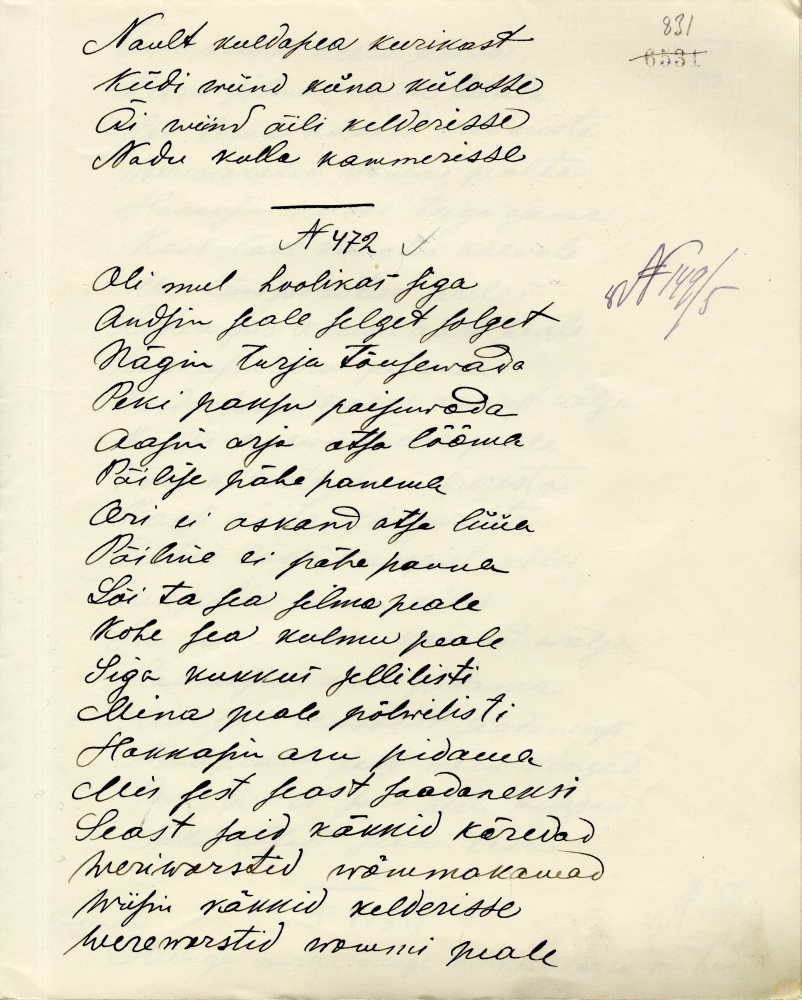 831
6531
Nault kuldapea kurikast
Küdi wiind küna külasse
Äi wiind äili kelderisse
Nadu kulla kammerisse
N 472
Oli mul hoolikas siga
Andsin seale selget solget
Nägin turja tõusewada
Peki paksu paisuwada
Aasin arja otsa lööma
Päilise pähe panema
Ari ei askand otsa lüüa
Päiline ei pähe panna
Lõi ta sea silma peale
Kohe sea kulmu peale
Siga kukkus sellilisti
Mina peale põlwilisti
Hakkasin aru pidama
Mis sest seast saadaneksi
Seast said käkkid käredad
Weriworstid wõmmakamad
Wiisin käkkid kelderisse
Wereworstid wommi peale